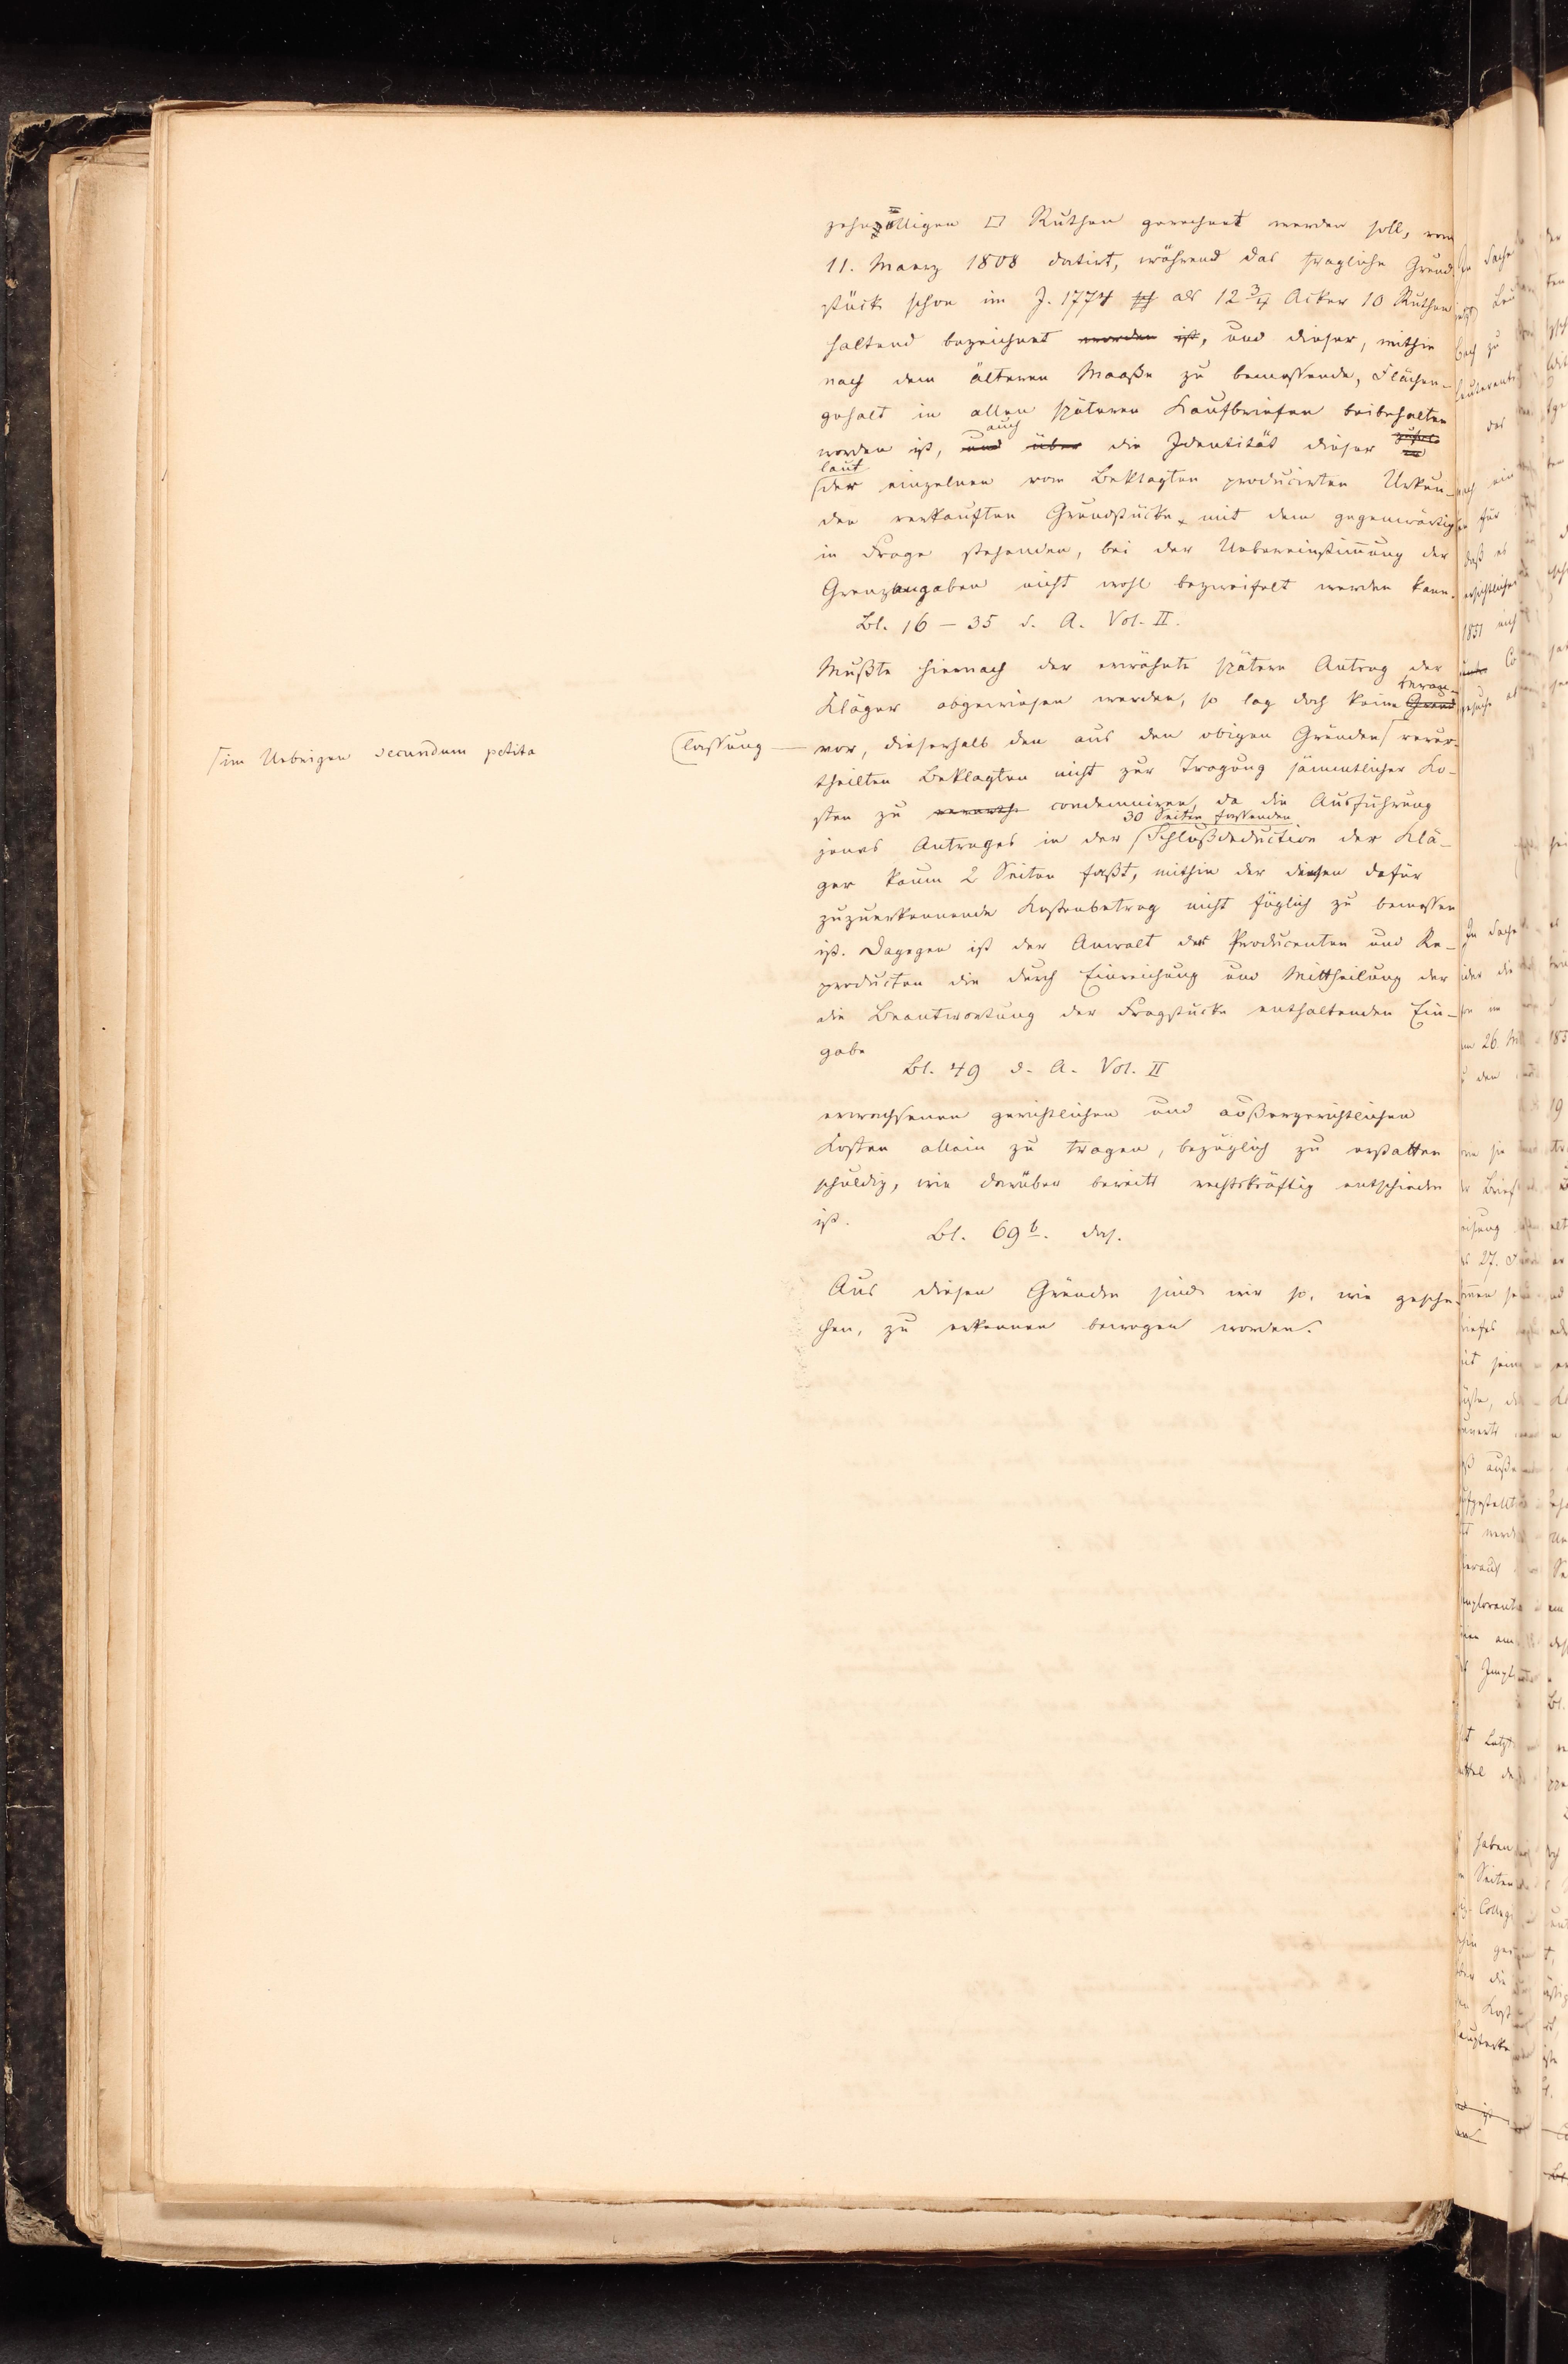 zehnzölligen □ Ruthen gerechnet werden soll, vom
11. Maerz 1808 datirt, während das fragliche Grund-
stück schon im J. 1774 als 12 3/4 Acker 10 Ruthen
haltend bezeichnet worden ist, und dieser, mithin
nach dem älteren Maaße zu bemessende, Flächen-
gehalt in allen späteren Kaufbriefen beibehalten
auch
worden ist, und über die Identität dieser
laut
der einzelnen vom Beklagten producirten Urkun-
den verkauften Grundstücke, mit dem gegenwärtig
in Frage stehenden, bei der Uebereinstimmung der
Grenzangaben nicht wohl bezweifelt werden kann.
Bl. 16 – 35 d. A. Vol. II.
Mußte hiernach der erwähnte spätere Antrag der
Kläger abgewiesen werden, so lag doch keine Grund
Veran-
lassung
vor, dieserhalb den aus den obigen Gründen verur-
im Uebrigen secundum petita
theilten Beklagten nicht zur Tragung sämmtlicher Ko-
sten zu condemniren, da die Ausführung
30 Seiten fassenden
jenes Antrages in der Schlußdeduction der Klä-
ger kaum 2 Seiten faßt, mithin der diesen dafür
zuzuerkennende Kostenbetrag nicht füglich zu bemessen
ist. Dagegen ist der Anwalt des Producenten und Re-
producten die durch Einreichung und Mittheilung der
die Beantwortung der Fragstücke enthaltenden Ein-
gabe
Bl. 49 d. A. Vol. II
erwachsenen gerichtlichen und außergerichtlichen
Kosten allein zu tragen, bezüglich zu erstatten
schuldig, wie darüber bereits rechtskräftig entschieden
ist.
Bl. 69 b. das.
Aus diesen Gründen sind wir so, wie gesche-
hen, zu erkennen bewogen worden.